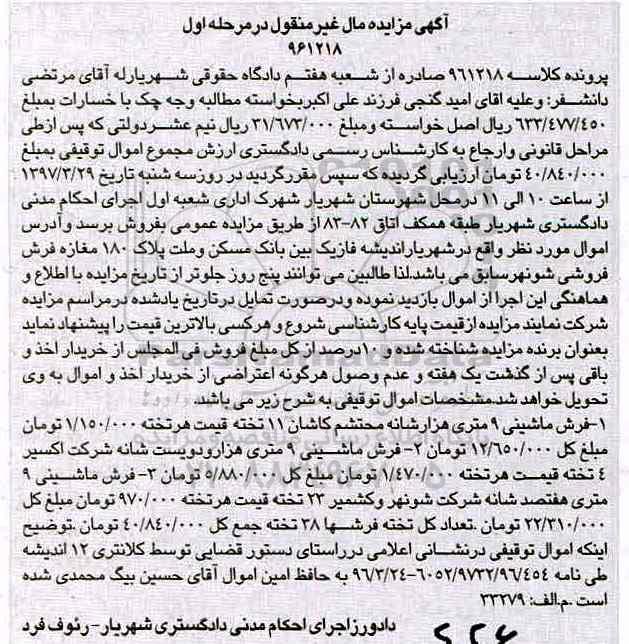 آگهی مزایده مال غیرمنقول در مرحله اول
۹۶۱۲۱۸
پرونده کلاسه ۹۶۱۲۱۸ صادره از شعبه هفتم دادگاه حقوقی شهریارله آقای مرتضی
دانشفر: وعلیه اقای امید گنجی فرزند علی اکبربخواسته مطالبه وجه چک با خسارات بمبلغ
۶۳۳/۴۷۷/۴۵۰ ریال اصل خواسته ومبلغ ۳۱/۶۷۳/۰۰۰ ریال نیم عشردولتی که پس ازطی
مراحل قانونی وارجاع به کارشناس رسمی دادگستری ارزش مجموع اموال توقیفی بمبلغ
۴۰/۸۴۰/۰۰۰ تومان ارزیابی گردیده که سپس مقررگردید در روزسه شنبه تاریخ ۱۳۹۷/۳/۲۹
از ساعت ۱۰ الی ۱۱ درمحل شهرستان شهریار شهرک اداری شعبه اول اجرای احکام مدنی
دادگستری شهریار طبقه همکف اتاق ۸۲-۸۳ از طریق مزایده عمومی بفروش برسد وآدرس
اموال مورد نظر واقع درشهریاراندیشه فازیک بین بانک مسکن وملت پلاک ۱۸۰ مغازه فرش
فروشی شونهرسابق می باشد.لذا طالبین می توانند پنج روز جلوتر از تاریخ مزایده با اطلاع و
هماهنگی این اجرا از اموال بازدید نموده ودرصورت تمایل درتاریخ یادشده درمراسم مزایده
شرکت نمایند مزایده ازقیمت پایه کارشناسی شروع و هرکسی بالاترین قیمت را پیشنهاد نماید
بعنوان برنده مزایده شناخته شده و ۱۰درصد از کل مبلغ فروش فی المجلس از خریدار اخذ و
باقی پس از گذشت یک هفته و عدم وصول هرگونه اعتراضی از خریدار اخذ و اموال به وی
تحویل خواهد شد.مشخصات اموال توقیفی به شرح زیر می باشد
۱-فرش ماشینی ۹ متری هزارشانه محتشم کاشان ۱۱ تخته قیمت هرتخته ۱/۱۵۰/۰۰۰ تومان
مبلغ کل ۱۲/۶۵۰/۰۰۰ تومان ۲- فرش ماشینی ۹ متری هزارودویست شانه شرکت اکسیر
۴ تخته قیمت هرتخته ۱/۴۷۰/۰۰۰ تومان مبلغ کل ۵/۸۸۰/۰۰۰ تومان ۳- فرش ماشینی ۹
متری هفتصد شانه شرکت شونهر وکشمیر ۲۳ تخته قیمت هرتخته ۹۷۰/۰۰۰ تومان مبلغ کل
۲۲/۳۱۰/۰۰۰ تومان .تعداد کل تخته فرشها ۳۸ تخته جمع کل ۴۰/۸۴۰/۰۰۰ تومان .توضیح
اینکه اموال توقیفی درنشانی اعلامی درراستای دستور قضایی توسط کلانتری ۱۲ اندیشه
طی نامه ۶۰۵۲/۹۷۳۲/۹۶/۴۵۴-۹۶/۳/۲۴ به حافظ امین اموال آقای حسین بیگ محمدی شده
است .م.الف: ۳۳۲۷۹
دادورز اجرای احکام مدنی دادگستری شهریار- رئوف فرد